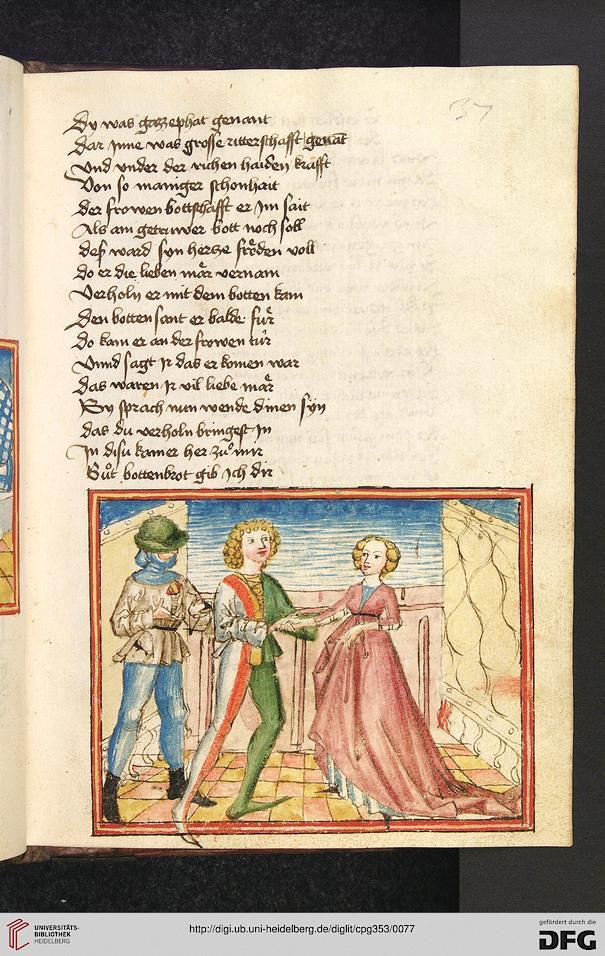 37
Dy was gazzephat genant
Dar Jnne was grosse ritterschafft genāt
Vnd vnder der richen haiden krafft
Von so maniger schonhait
Der frowen bottschafft er Jm sait
Als ain getruwer bott noch soll
des ward syn hertze fröden voll
do er die lieben mär vernam
Verholn er mit dem botten kam
Den botten sant er balde fur
Do kam er an der frowen tur
Vnnd sagt Jr das er komen war
das waren Jr vil liebe mär
Sy sprach nun wende dinen syn
das du verholn bringest Jn
Jn disu kamer her zuͦ mir
Guͦt bottenbrot gib Jch dir
UNIVERSITÄTS-
BIBLIOTHEK
HEIDELBERG
http://digi.ub.uni-heidelberg.de/diglit/cpg353/0077
gefördert durch die
DFG